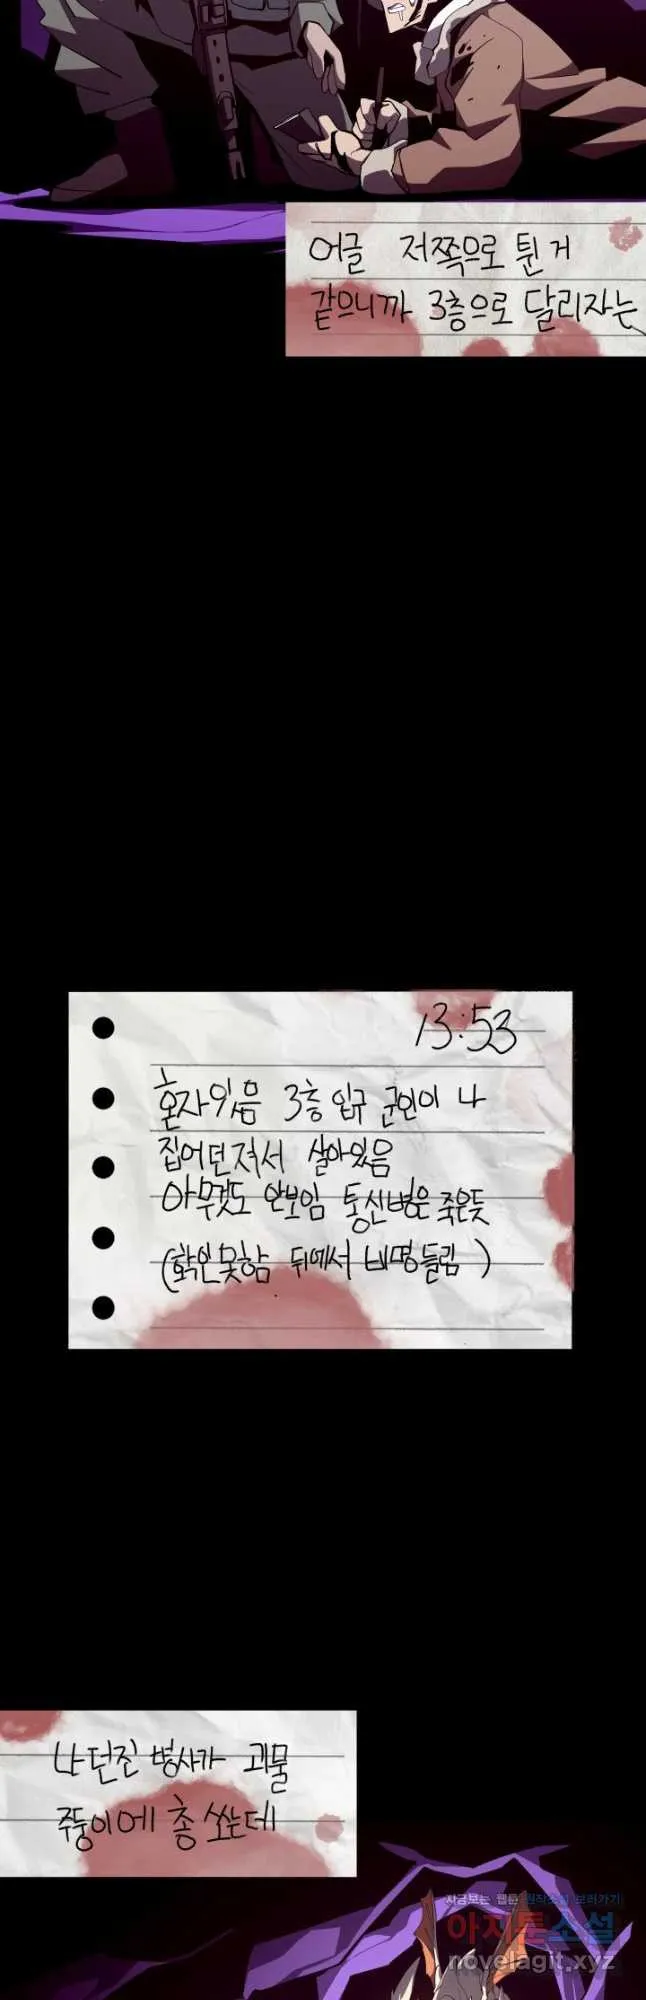 어글 저쪽으로 튄 거
같으니까 3층으로 달리자는
13:53
혼자있음 3층 입구 군인이 나
집어던져서 살아있음
아무것도 안보임 통신병은 죽은듯
(확인못함 뒤에서 비명들림)
나 던진 병사가 괴물
주둥이에 총 쐈는데
지금보는 웹툰 원작소설 보러가기
아지툰소설
novelagit.xyz